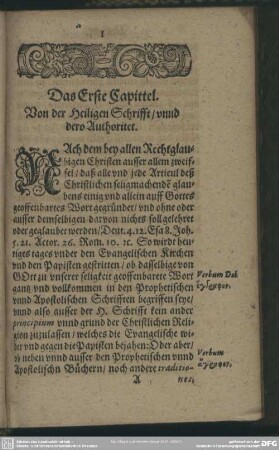 1
Das Erste Capittel.
Von der Heiligen Schrifft / vnnd
dero Authoritet.
NAch dem bey allen Rechtglau-
bigen Christen ausser allem zweif-
fel / daß alle vnd jede Articul deß
Christlichen seligmachenden glau-
bens einig vnd allein auff Gottes
geoffenbartes Wort gegründet / vnd ohne oder
ausser demselbigen darvon nichts soll gelehret
oder geglaubet werden / Deut. 4. 12. Esa 8. Joh.
5. 21. Actor. 26. Rom. 10. ꝛc. So wirdt heu-
tiges tages vnder den Evangelischen Kirchen
vnd den Papisten gestritten / ob dasselbige von
GOtt zu vnserer seligkeit geoffenbarete Wort
gantz vnd vollkommen in den Prophetischen
vnnd Apostolischen Schrifften begriffen seye /
vnnd also ausser der H. Schrifft kein ander
principium vnnd grund der Christlichen Reli-
gion zuzulassen / welches die Evangelische wi-
der vnd gegen die Papisten bejahen: Oder aber /
ob neben vnnd ausser den Prophetischen vnnd
Apostolischn Büchern / noch andere traditio-
A
nes,
Verbum Dei
ἔγγραφον.
Verbum
ἄγραφον.